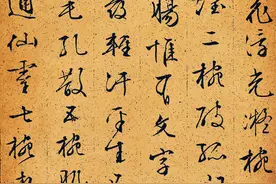 花浮光凝椀
二椀破孤
腸惟有文字
發輕汗平生
毛孔散五椀肌
通仙靈七椀